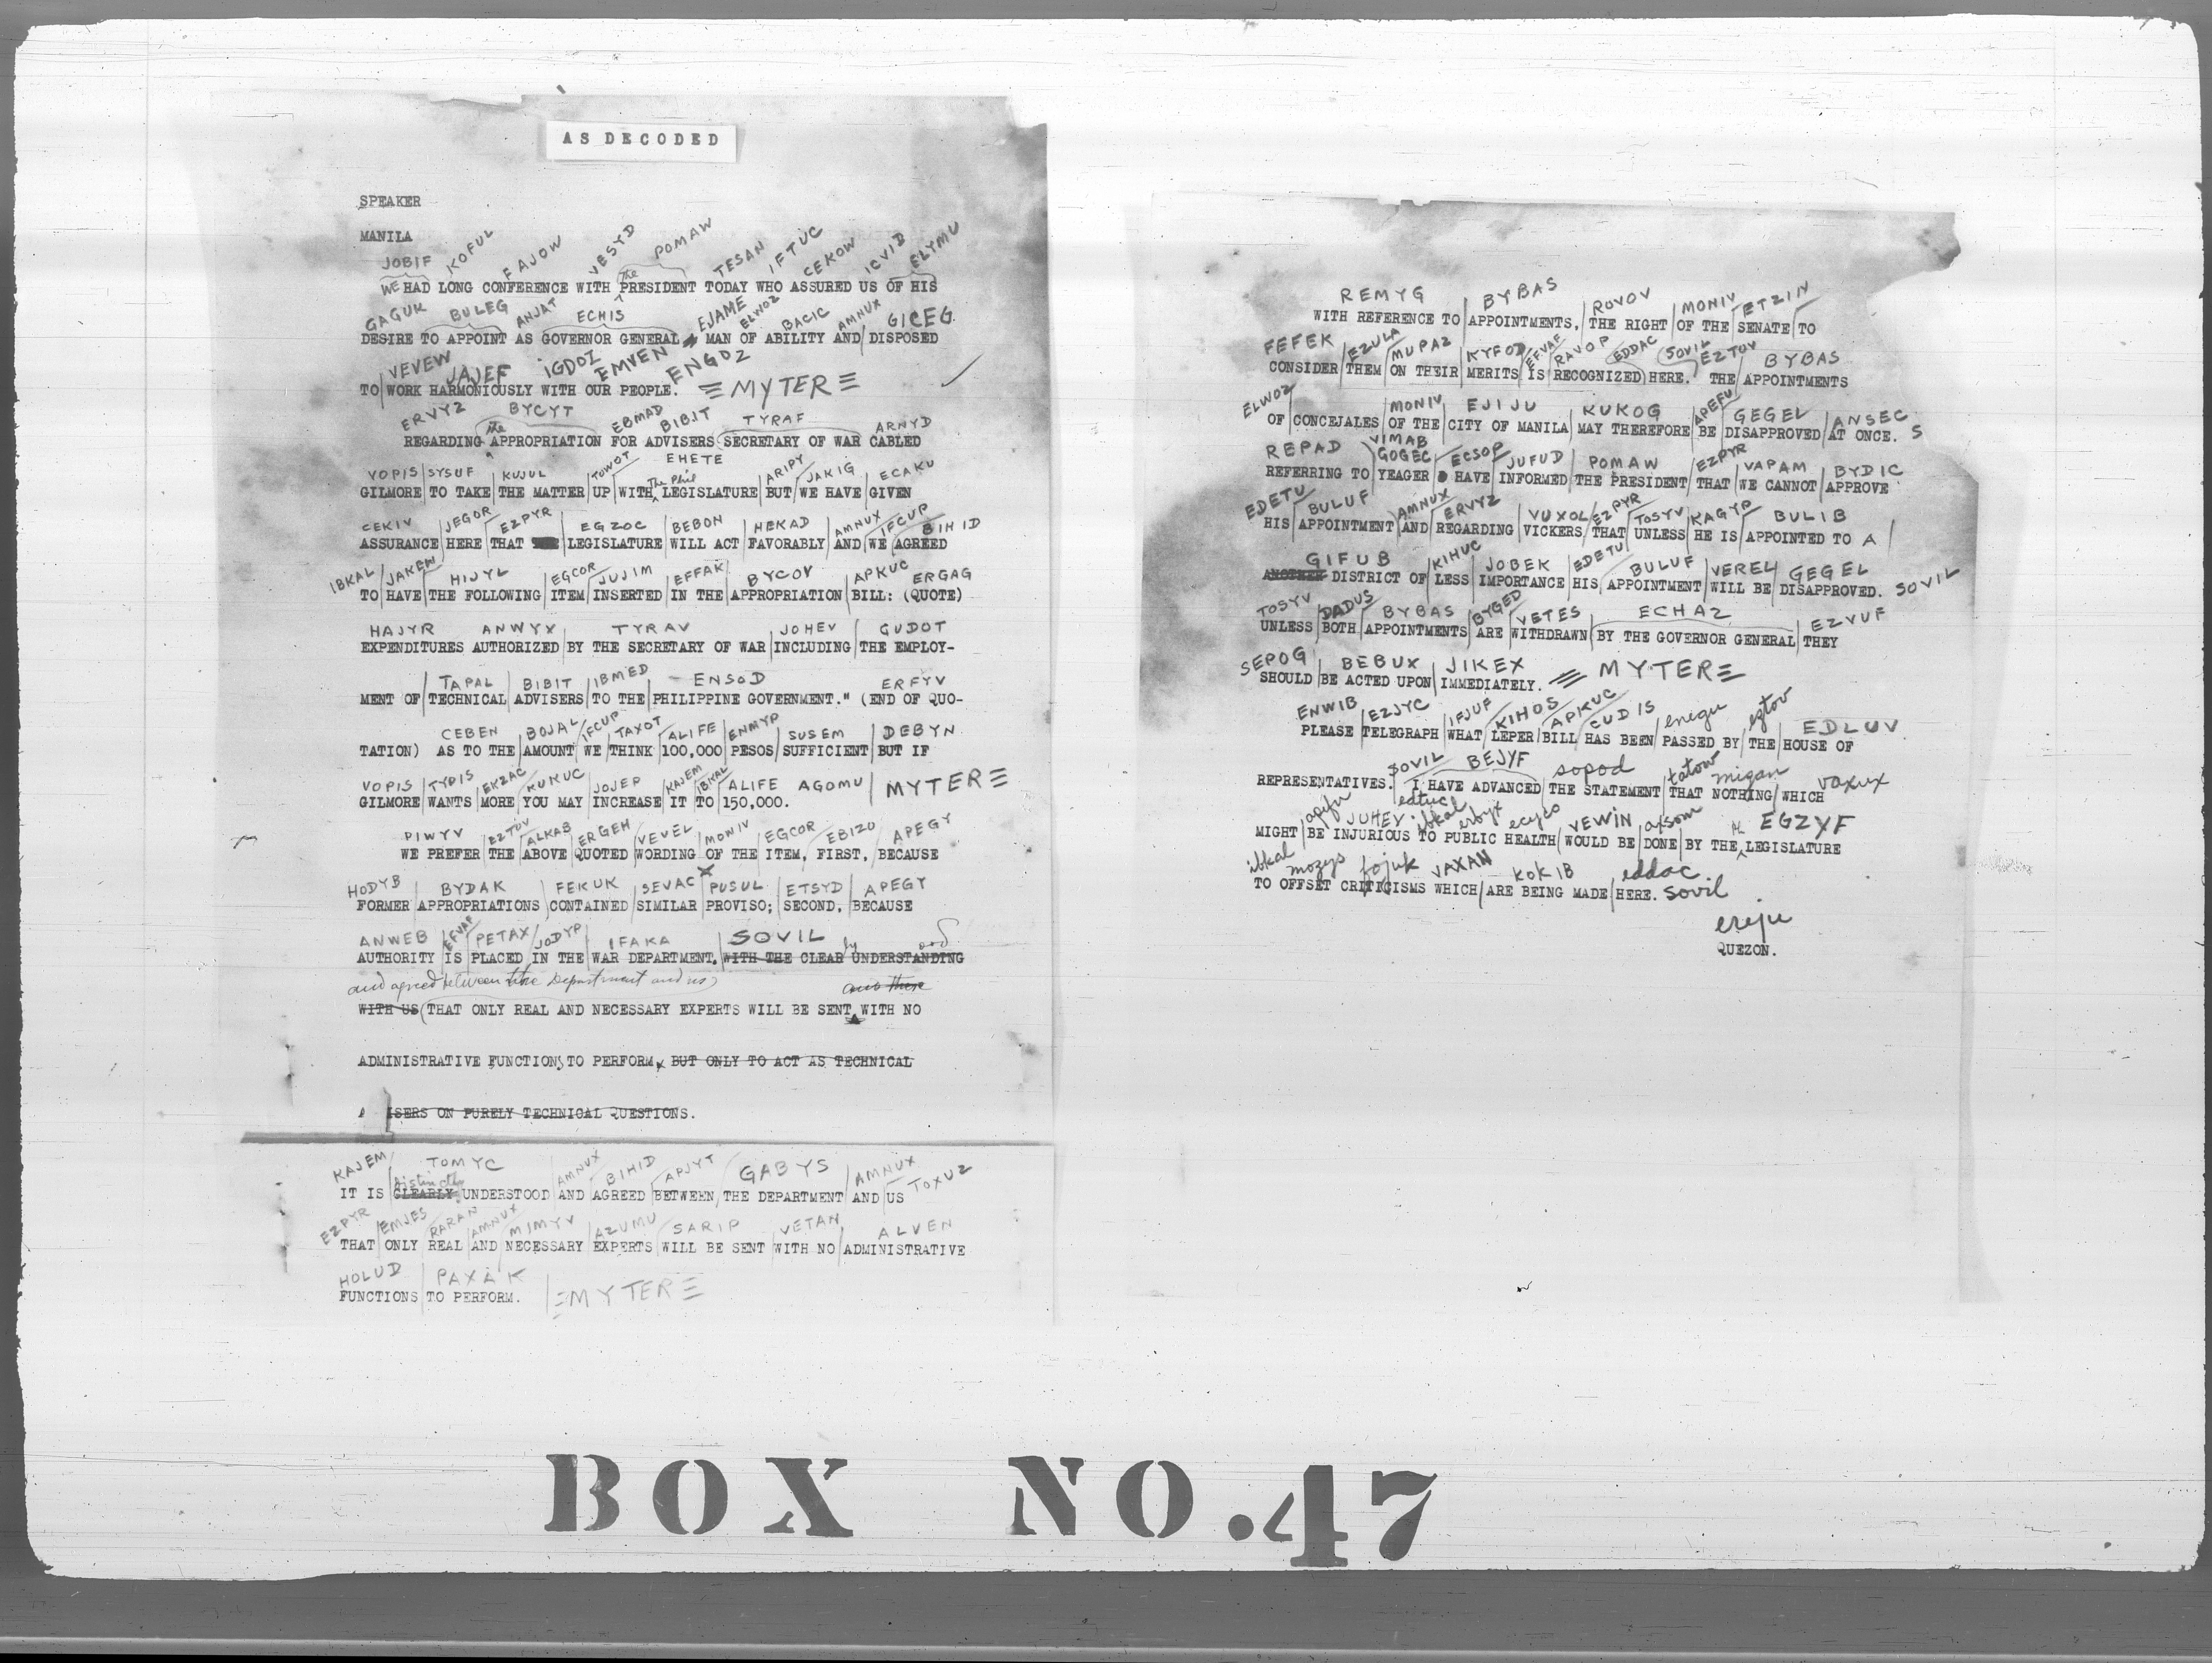 AS DECODED
SPEAKER
MANILA
JOBIF KOFUL FAJOW VESYD POMAW TESAN IFTUC CEKOW ICVID ELYMU
the
WE HAD LONG CONFERENCE WITH PRESIDENT TODAY WHO ASSURED US OF HIS
GAGUK BULEG ANJAT ECHIS EJAME ELWOZ BACIC AMNUX GICEG
DESIRE TO APPOINT AS GOVERNOR GENERAL MAN OF ABILITY AND DISPOSED
VEVEW JAJEF IGDOZ EMVEN ENGOZ
TO WORK HARMONIOUSLY WITH OUR PEOPLE. MYTER
ERVYZ BYCYT EBMAD BIBIT TYRAF ARNYD
the
REGARDING APPROPRIATION FOR ADVISERS SECRETARY OF WAR CABLED
VOPIS SYSUF KUJUL TOWOT EHETE ARIPY JAKIG ECAKU
The Phil
GILMORE TO TAKE THE MATTER UP WITH LEGISLATURE BUT WE HAVE GIVEN
CEKIV JEGOR EZPYR EGZOC BEBON HEKAD AMNUX IFCUP BIHID
ASSURANCE HERE THAT LEGISLATURE WILL ACT FAVORABLY AND WE AGREED
IBKAL JAKEW HIJYL EGCOR JUJIM EFFAK BYCOV APKUC ERGAG
TO HAVE THE FOLLOWING ITEM INSERTED IN THE APPROPRIATION BILL: (QUOTE)
HAJYR ANWYX TYRAV JOHEV GUDOT
EXPENDITURES AUTHORIZED BY THE SECRETARY OF WAR INCLUDING THE EMPLOY-
TAPAL BIBIT IBMED ENSOD ERFYV
MENT OF TECHNICAL ADVISERS TO THE PHILIPPINE GOVERNMENT." (END OF QUO-
CEBEN BOJAL IFCUP TAXOT ALIFE ENMYP SUSEM DEBYN
TATION) AS TO THE AMOUNT WE THINK 100,000 PESOS SUFFICIENT BUT IF
VOPIS TYPIS EKZAC KUKUC JOJEP KAJEM IBKAL ALIFE AGOMU MYTER
GILMORE WANTS MORE YOU MAY INCREASE IT TO 150,000.
PIWYV EZTOV ALKAB ERGEH VEVEL MONIV EGCOR EBIZO APEGY
WE PREFER THE ABOVE QUOTED WORDING OF THE ITEM, FIRST, BECAUSE
HODYB BYDAK FEKUK SEVAC PUSUL ETSYD APEGY
FORMER APPROPRIATIONS CONTAINED SIMILAR PROVISO; SECOND, BECAUSE
ANWEB EFVAF PETAX JODYP IFAKA SOVIL
AUTHORITY IS PLACED IN THE WAR DEPARTMENT. WITH THE CLEAR UNDERSTANDING
and agreed between the Department and us
WITH US (THAT ONLY REAL AND NECESSARY EXPERTS WILL BE SENT WITH NO
ADMINISTRATIVE FUNCTIONS TO PERFORM, BUT ONLY TO ACT AS TECHNICAL
ISERS ON PURELY TECHNICAL QUESTIONS.
KAJEM TOMYC AMNUX BIHID APJYT GABYS AMNUX TOXUZ
distinctly
IT IS CLEARLY UNDERSTOOD AND AGREED BETWEEN THE DEPARTMENT AND US
EZPYR EMJES RARAN AMNUX MIMYV AZUMU SARIP VETAN ALVEN
THAT ONLY REAL AND NECESSARY EXPERTS WILL BE SENT WITH NO ADMINISTRATIVE
HOLUD PAXAK
FUNCTIONS TO PERFORM. MYTER
REMYG BYBAS ROVOV MONIV ETZIN
WITH REFERENCE TO APPOINTMENTS, THE RIGHT OF THE SENATE TO
FEFEK EZULA MUPAZ KYFOD EFVAF RAVOP EDDAC SOVIL EZTOV BYBAS
CONSIDER THEM ON THEIR MERITS IS RECOGNIZED HERE. THE APPOINTMENTS
ELWOZ MONIV EJIJU KUKOG APEFU GEGEL ANSEC
OF CONCEJALES OF THE CITY OF MANILA MAY THEREFORE BE DISAPPROVED AT ONCE. S
REPAD VIMAB GOGEC ECSOP JUFUD POMAW EZPYR VAPAM BYDIC
REFERRING TO YEAGER HAVE INFORMED THE PRESIDENT THAT WE CANNOT APPROVE
EDETU BULUF AMNUX ERVYZ VUXOL EZPYR TOSYV KAGYP BULIB
HIS APPOINTMENT AND REGARDING VICKERS THAT UNLESS HE IS APPOINTED TO A
GIFUB KIHUC JOBEK EDETU BULUF VEREL GEGEL
ANOTHER DISTRICT OF LESS IMPORTANCE HIS APPOINTMENT WILL BE DISAPPROVED. SOVIL
TOSYV DADUS BYBAS BYGED VETES ECHAZ EZVUF
UNLESS BOTH APPOINTMENTS ARE WITHDRAWN BY THE GOVERNOR GENERAL THEY
SEPOG BEBUX JIKEX
SHOULD BE ACTED UPON IMMEDIATELY. MYTER
ENWIB EZJYC IFJUF KIHOS APKUC CUDIS enegu eztov EDLUV
PLEASE TELEGRAPH WHAT LEPER BILL HAS BEEN PASSED BY THE HOUSE OF
SOVIL BEJYF sopod tatow migan vaxux
REPRESENTATIVES. I HAVE ADVANCED THE STATEMENT THAT NOTHING WHICH
apefu JUHEV edtuc ibkal erbyx ecyco VEWIN axsom EGZYF
MIGHT BE INJURIOUS TO PUBLIC HEALTH WOULD BE DONE BY THE LEGISLATURE
ibkal mozys fojuk VAXAN KOKIB eddac
TO OFFSET CRITICISMS WHICH ARE BEING MADE HERE. sovil
ereju
QUEZON.
BOX NO.47